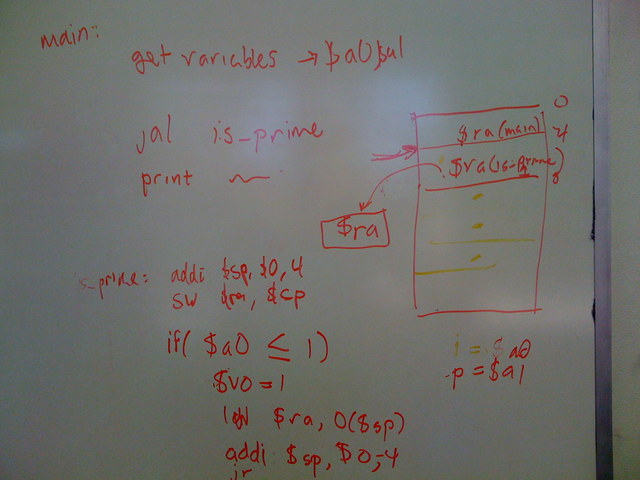 main:
get variables → $a0 $a1
jal is_prime
print
0
$ra (main) 4
$ra (is-prime) 8
$ra
is_prime: addi $sp, $0, 4
sw $ra, $sp
if( $a0 ≤ 1)
$v0 = 1
lw $ra, 0($sp)
addi $sp, $0,-4
jr
i = $a0
p = $a1